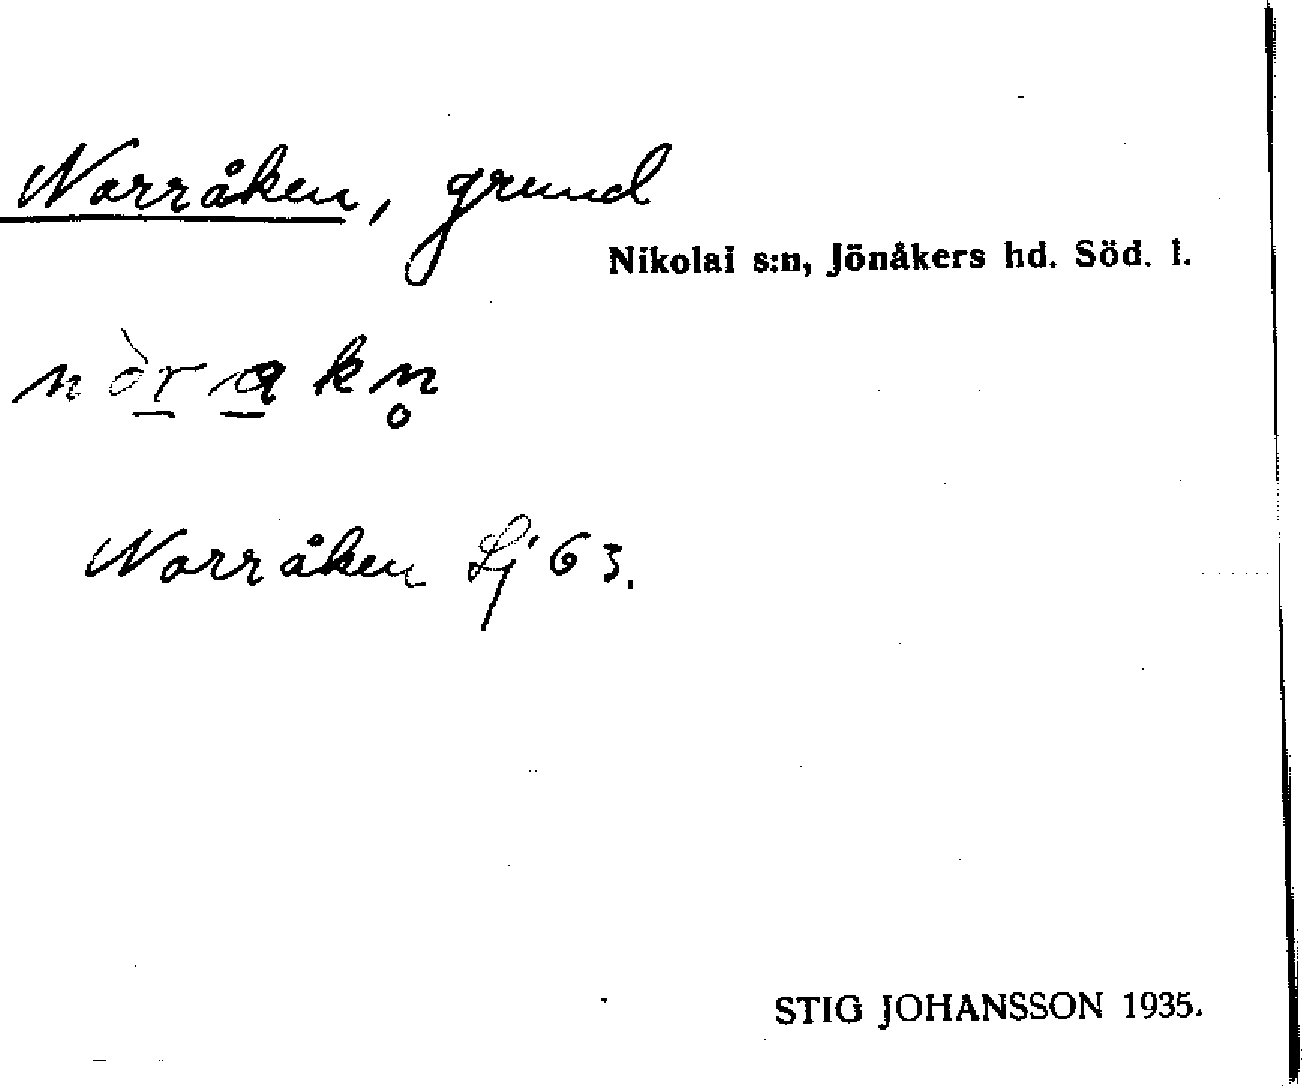 Norråken, grund
Nikolai s:n, Jönåkers hd. Söd. l.
nòrakn̥
Norråken Lj 63.
STIG JOHANSSON 1935.